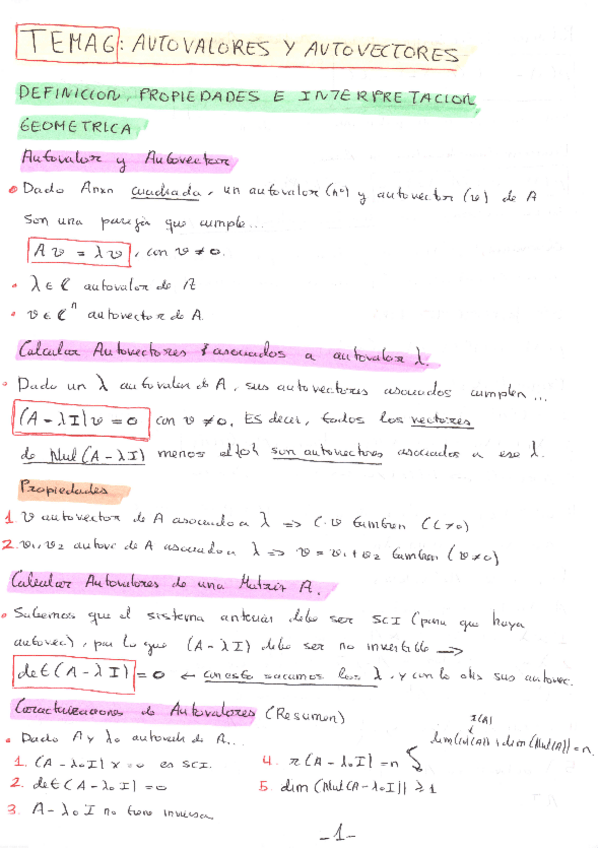 TEMA6: AUTOVALORES Y AUTOVECTORES
DEFINICION, PROPIEDADES E INTERPRETACION
GEOMETRICA
Autovalor y Autovector
• Dado Anxn cuadrada, un autovalor (nº) y autovector (v) de A
son una pareja que cumple...
Av = λv, con v ≠ 0.
• λ ∈ ℂ autovalor de A
• v ∈ ℂⁿ autovector de A.
Calcular Autovectores asociados a autovalor λ.
• Dado un λ autovalor de A, sus autovectores asociados cumplen...
(A - λI)v = 0 con v ≠ 0. ES decir, todos los vectores
de Nul(A - λI) menos el {0} son autovectores asociados a ese λ.
Propiedades
1. v autovector de A asociado a λ => c·v tambien (c ≠ 0)
2. v₁, v₂ autove de A asociado a λ => v = v₁ + v₂ tambien (v ≠ 0)
Calcular Autovalores de una Matriz A.
• Sabemos que el sistema anterior debe ser SCI (para que haya
autovec), por lo que (A - λI) debe ser no invertible →
det(A - λI) = 0 ← con esto sacamos los λ, y con lo otro sus autovec.
Caracterizaciones de Autovalores (Resumen)
r(A)
dim(Col(A)) + dim(Nul(A)) = n.
• Dado A y λ₀ de A...
1. (A - λ₀I)x = 0 es SCI.
4. r(A - λ₀I) = n
2. det(A - λ₀I) = 0
5. dim(Nul(A - λ₀I)) ≥ 1
3. A - λ₀I no tiene inversa
-1-